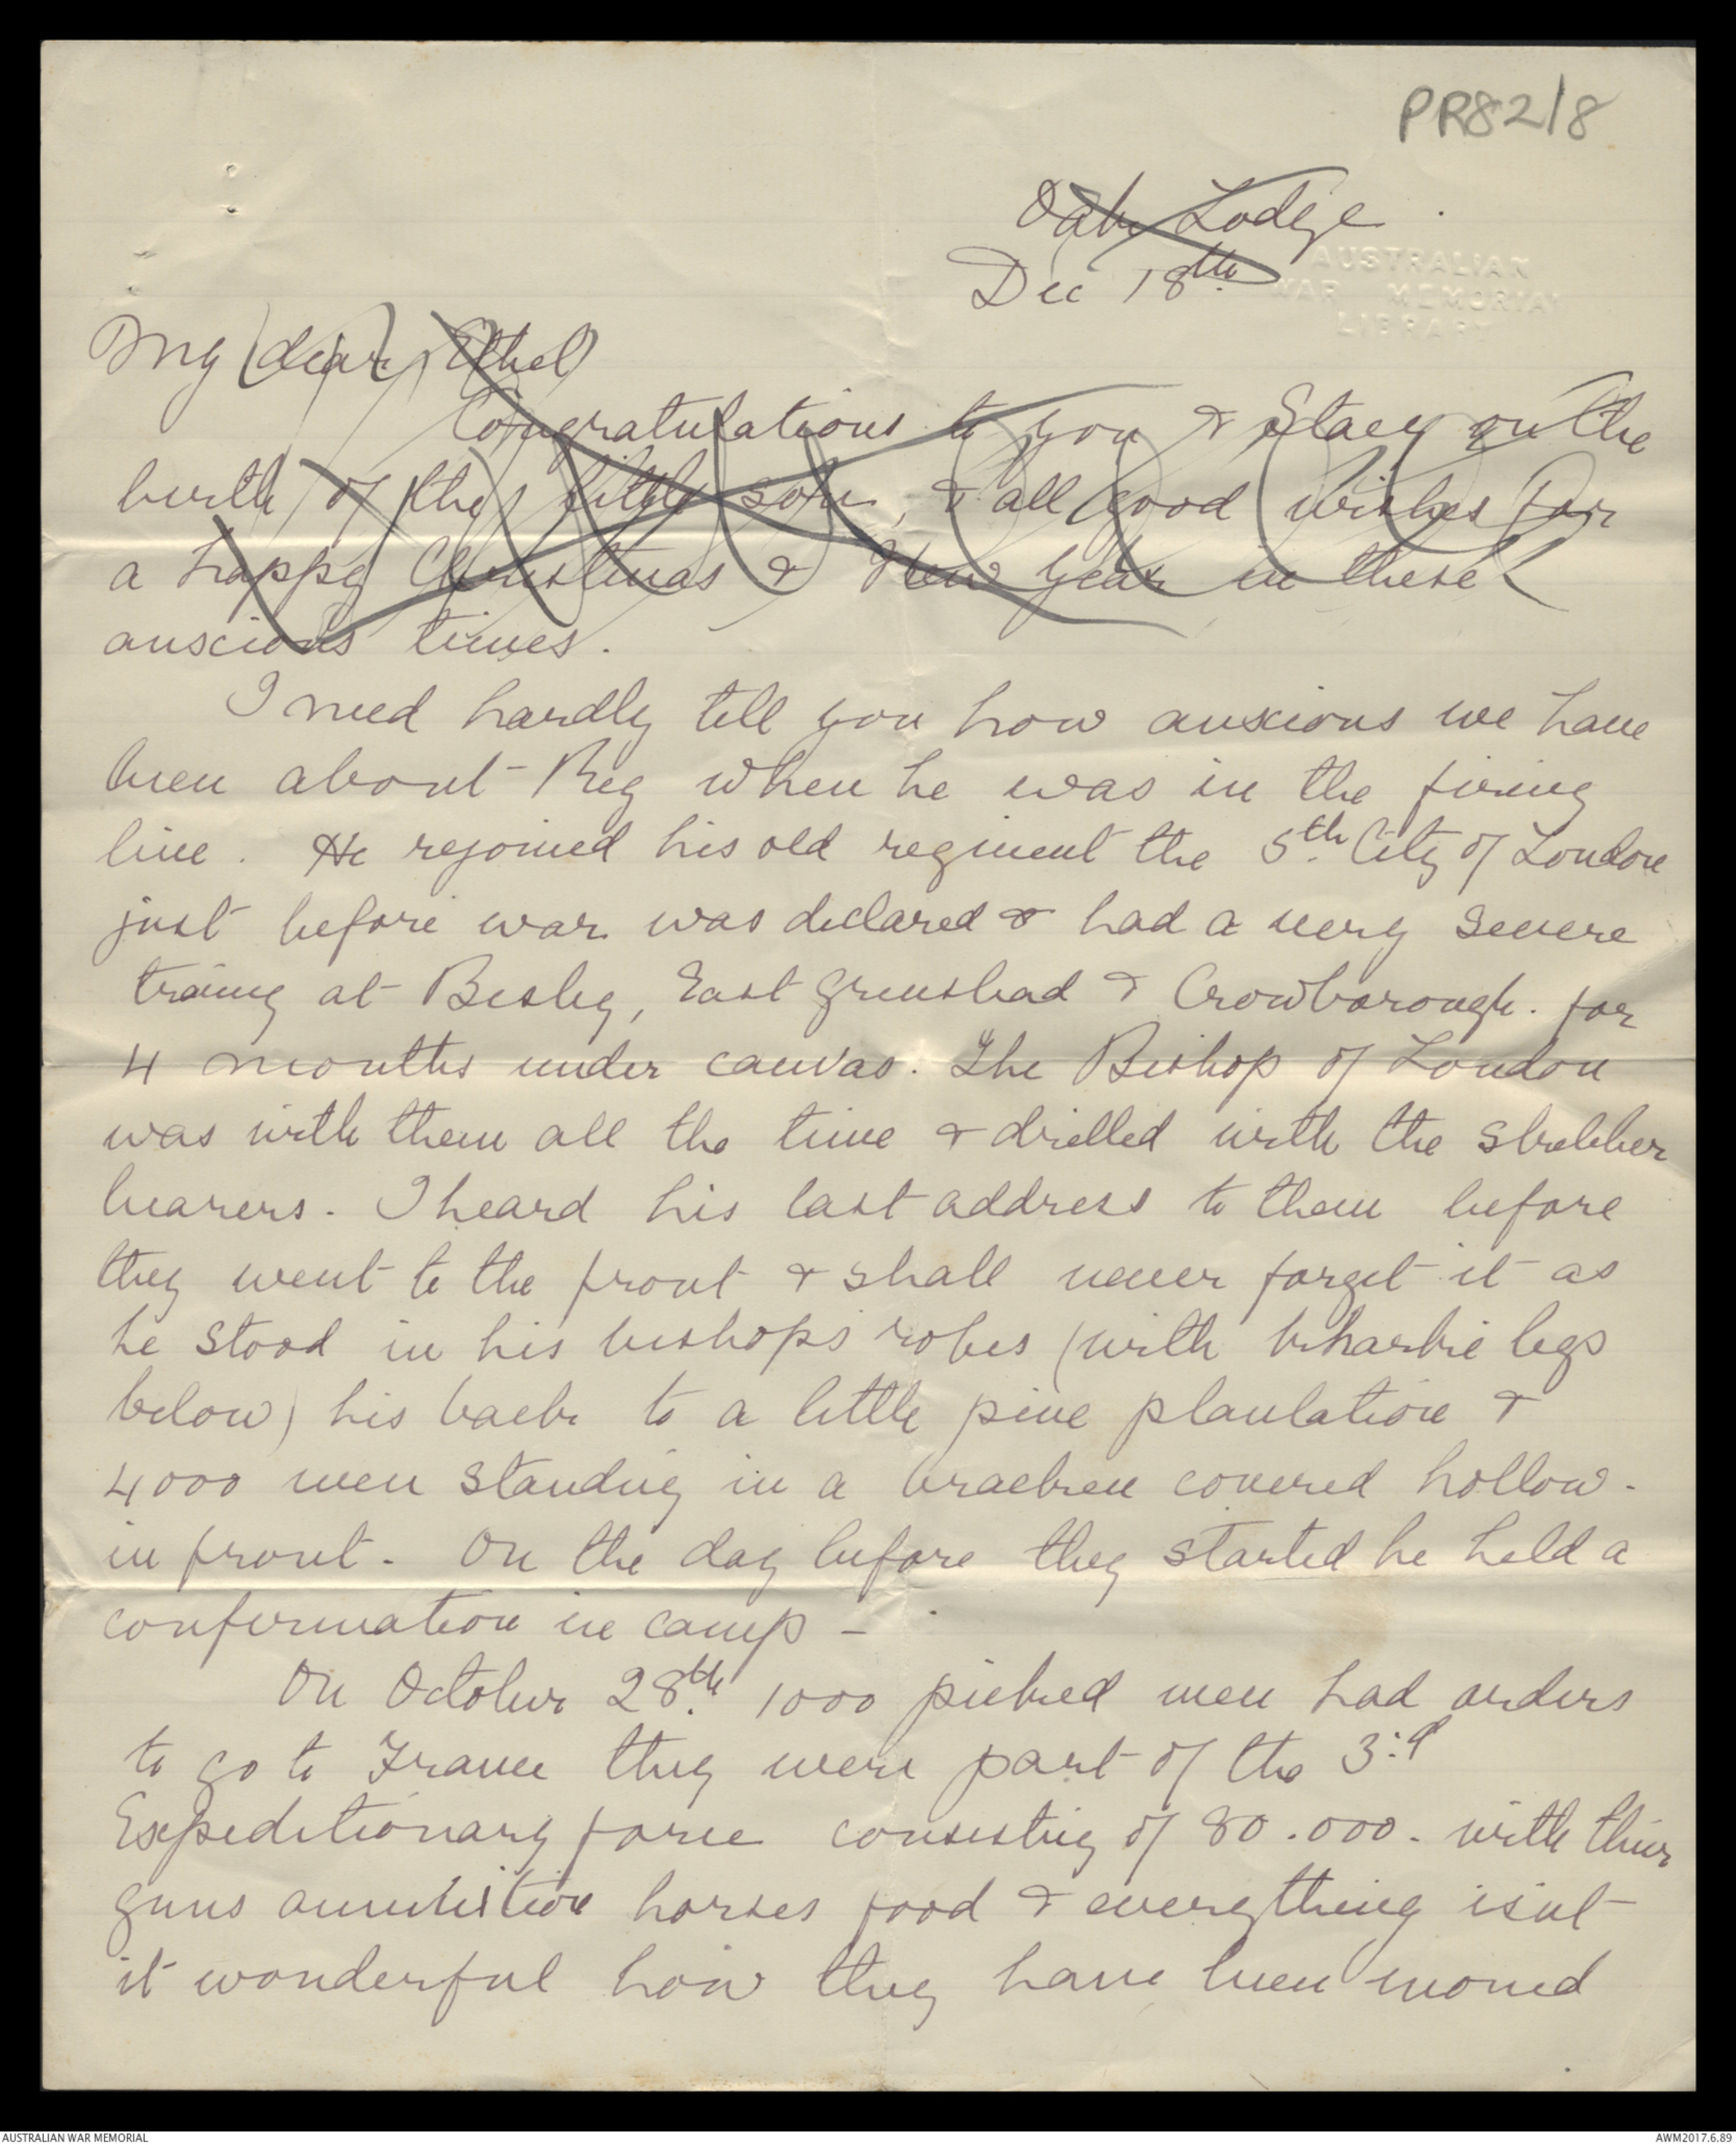 PR82/8
Oak Lodge.
Dec 18th.
AUSTRALIAN
WAR MEMORIAL
LIBRARY
My dear Ethel
Congratulations to you & Stacy on the
birth of the little son, & all good wishes for
a happy Christmas & New Year in these
anscious times.
I need hardly tell you how anxious we have
been about Reg when he was in the firing
line. He rejoined his old regiment the 5th. City of London
just before war was declared & had a very severe
traing at Bisley, East Grinstead & Crowborough. for
4 months under canvas. The Bishop of London
was with them all the time & drilled with the stretcher
bearers. I heard his last address to them before
they went to the front & shall never forget it as
he stood in his bishops robes (with kharkie legs
below) his back to a little pine plantation &
4000 men standing in a bracken covered hollow.
in front. On the day before they started he held a
confirmation in camp -
On October 28th. 1000 picked men had orders
to go to France they were part of the 3rd
Expeditionary force consisting of 80.000. with their
guns ammunition horses food & everything isnt
it wonderful how they have been moved
AUSTRALIAN WAR MEMORIAL
AWM2017.6.89